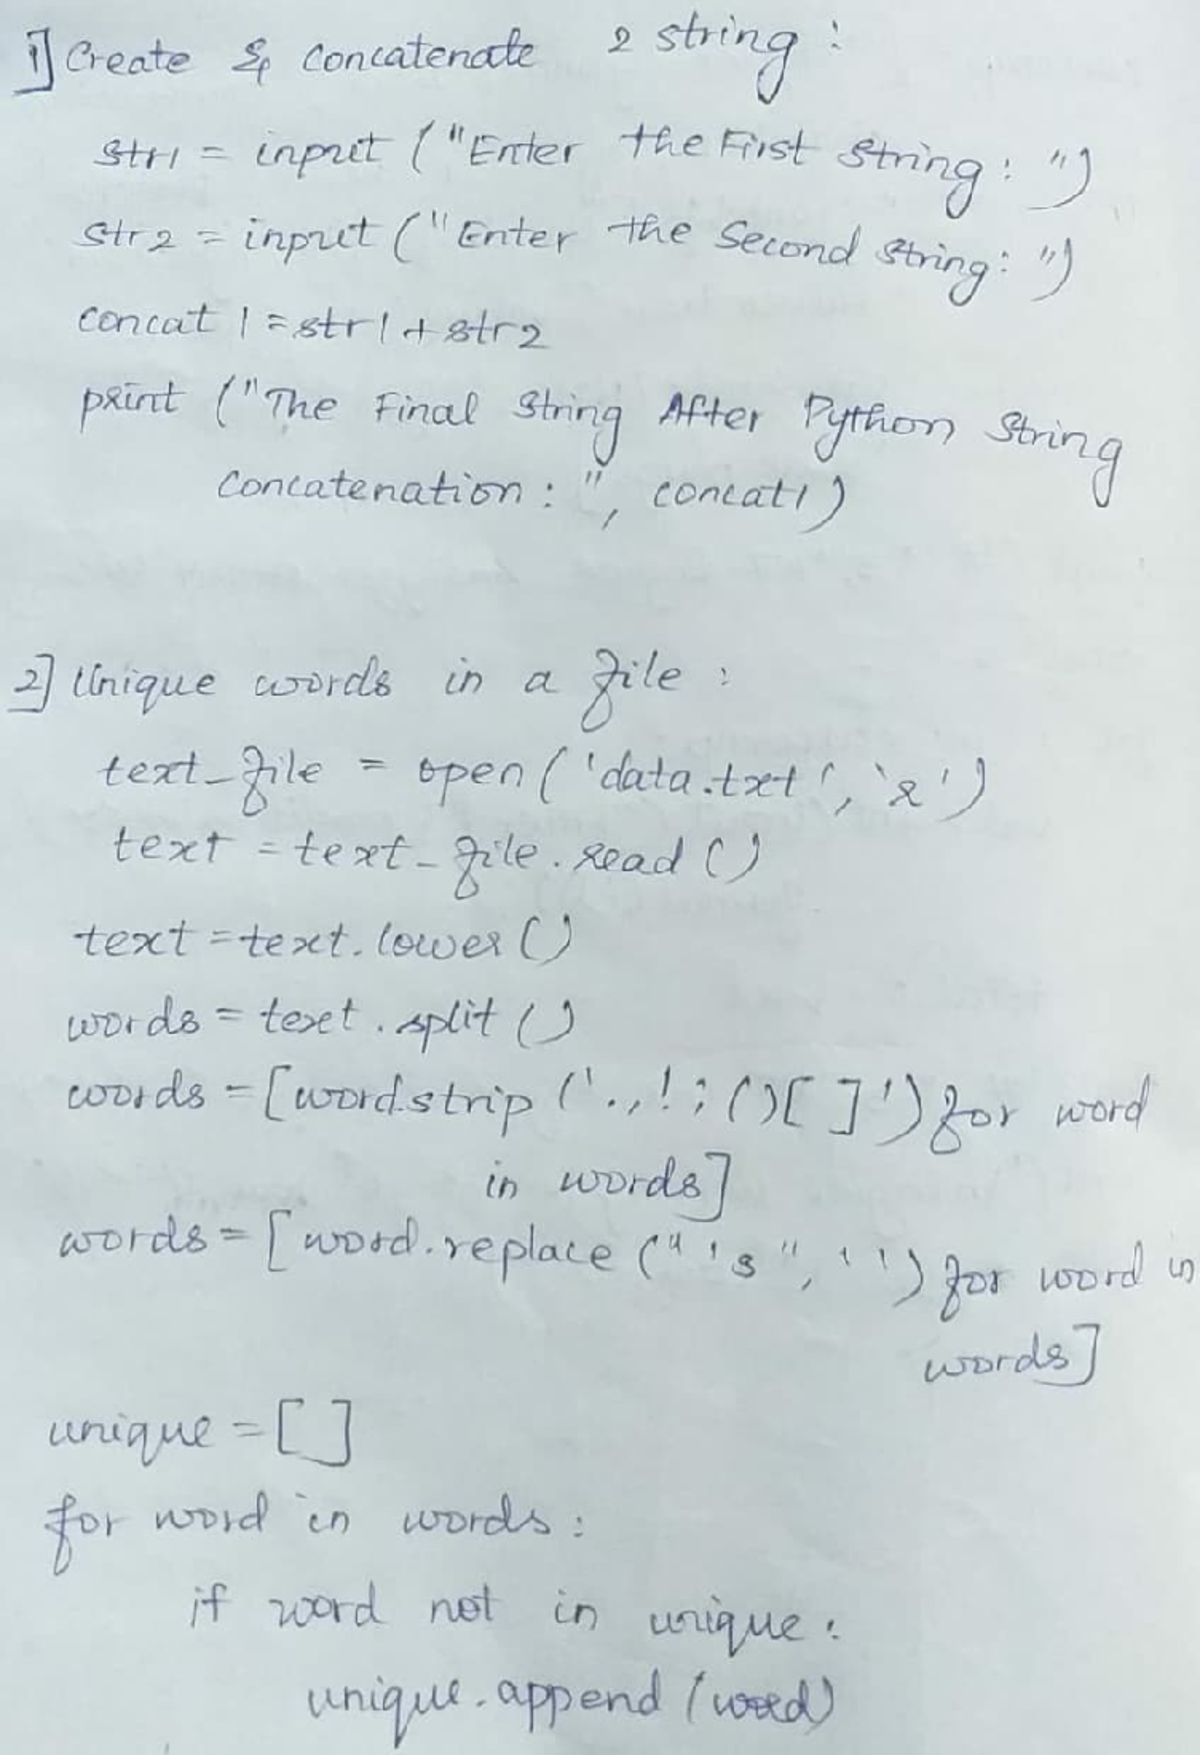 1] Create & Concatenate 2 string :
str1 = input ("Enter the First String : ")
str2 = input ("Enter the Second String: ")
concat 1 = str1 + str2
print ("The Final String After Python String
Concatenation : ", concat1)
2] Unique words in a file :
text_file = open ('data.txt', 'r')
text = text_file.read ()
text = text.lower ()
words = text.split ()
words = [word.strip ('.,!;()[ ]') for word
in words]
words = [word.replace ("'s", '') for word in
words]
unique = [ ]
for word in words :
if word not in unique :
unique.append (word)